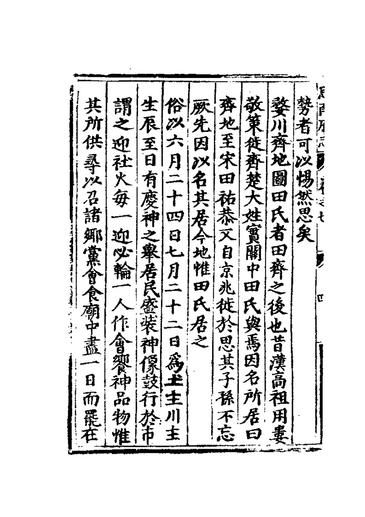 勢者可以惕然思矣
婺川齊地圖田氏者田齊之後也昔漢高祖用婁
敬策徙齊楚大姓實關中田氏與焉因名所居曰
齊地至宋田祐恭又自京兆徙於思其子孫不忘
厥先因以名其居今地惟田氏居之
俗以六月二十四日七月二十二日為土主川主
生辰至日有慶神之舉居民盛裝神像鼓行於市
謂之迎社火每一迎必輪一人作會饗神品物惟
其所供尋以召諸鄉黨會食廟中盡一日而罷在